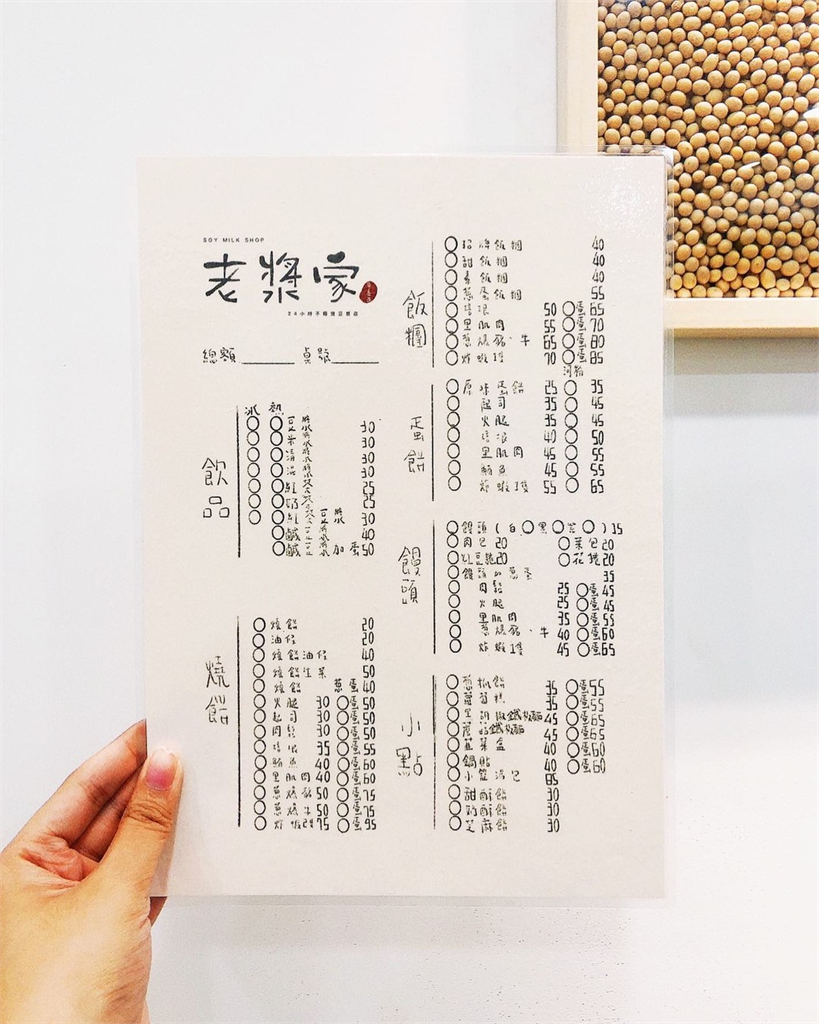 SOY MILK SHOP
老漿家
24小時不
總額 桌號
飲品
冰 熱
豆漿 30
米漿 30
清漿 30
30
紅茶 25
奶茶 25
紅茶豆漿 30
鹹豆漿 40
鹹豆漿加蛋 50
燒餅
燒餅 20
油條 20
燒餅油條 40
燒餅生菜 50
燒餅蔥蛋 40
火腿 30 蛋50
起司 30 蛋50
肉鬆 30 蛋50
培根 35 蛋55
鮪魚 40 蛋60
里肌肉 40 蛋60
蔥燒豬 50 蛋75
蔥燒牛 50 蛋75
炸蝦2隻 75 蛋95
飯糰
招牌飯糰 40
甜飯糰 40
素飯糰 40
蔥蛋飯糰 55
培根 50 蛋65
里肌肉 55 蛋70
蔥燒豬、牛 65 蛋80
炸蝦1隻 70 蛋85
蛋餅
河粉
原味蛋餅 25 35
起司 35 45
火腿 35 45
培根 40 50
里肌肉 45 55
鮪魚 45 55
炸蝦1隻 55 65
饅頭
饅頭(白 黑 芋)15
肉包20 菜包20
紅豆捲20 花捲20
饅頭加蔥蛋 35
肉鬆 25 蛋45
火腿 25 蛋45
里肌肉 35 蛋55
蔥燒豬、牛 40 蛋60
炸蝦1隻 45 蛋65
小點
蔥抓餅 35 蛋55
蘿蔔糕 35 蛋55
黑胡椒鐵板麵 45 蛋65
蘑菇鐵板麵 45 蛋65
韭菜盒 40 蛋60
鍋貼 40 蛋60
小籠湯包 65
甜酥餅 30
奶酥餅 30
芝麻餅 30